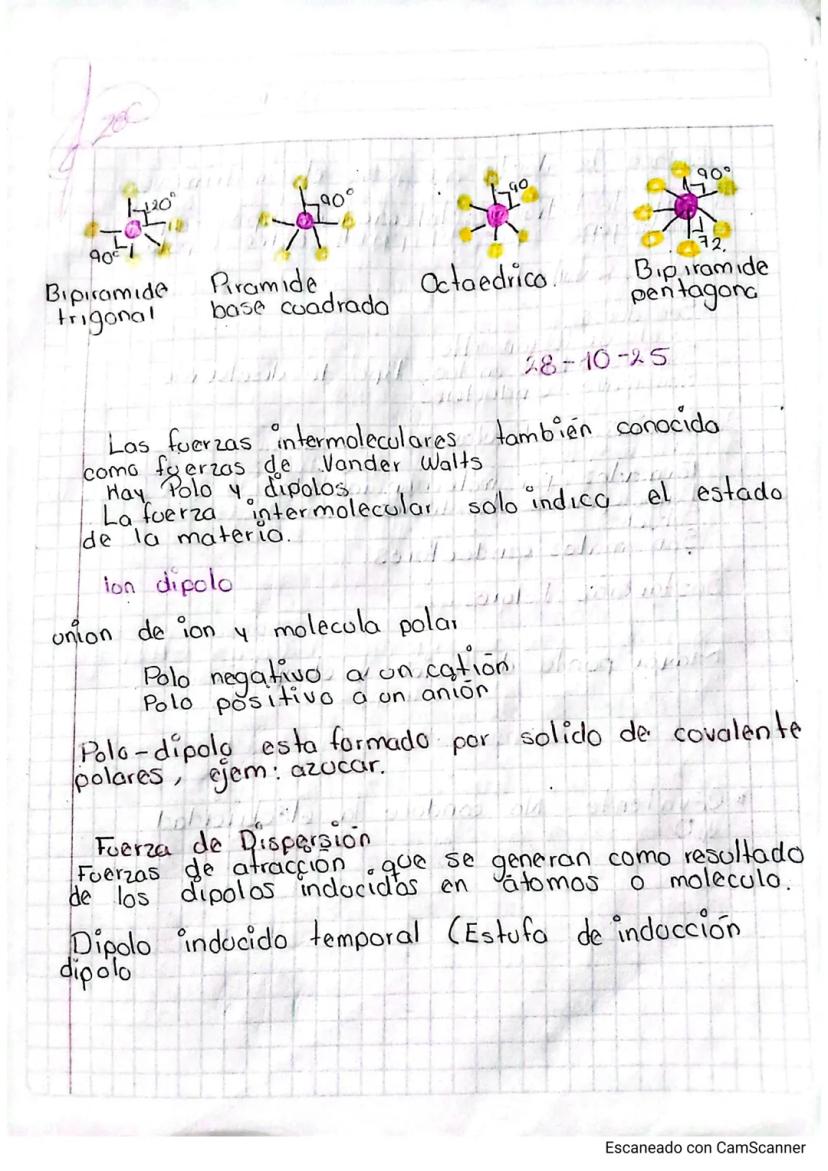 28C
120°
90°
90°
90
90°
72.
Bipiramide
trigonal
Piramide
base cuadrada
Octaedrico.
Bipiramide
pentagona
28-10-25
Las fuerzas intermoleculares también conocida
como fuerzas de Vander Walts
Hay Polo y dipolos
La fuerza intermolecular solo indica el estado
de la materia.
ion dipolo
union de ion y molecula polar
Polo negativo a un catión
Polo positivo a un anión
Polo-dipolo esta formado por solido de covalente
polares, ejem: azucar.
Fuerza de Dispersión
Fuerzas de atracción que se generan como resultado
de los dipolos inducidos en átomos o molecula.
Dipolo inducido temporal (Estufa de inducción
dipolo
Escaneado con CamScanner